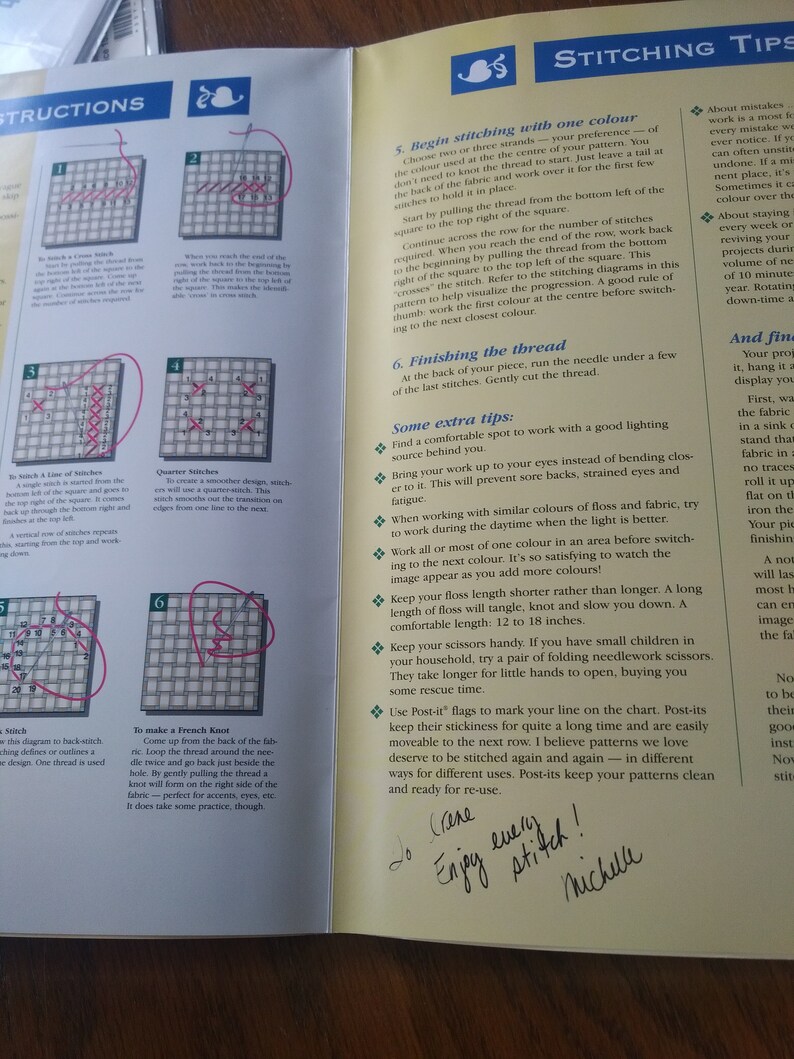 STRUCTIONS
1
To Stitch a Cross Stitch
Start by pulling the thread from
the bottom left of the square to the
top right of the square. Come up
again at the bottom left of the next
square. Continue across the row for
the number of stitches required.
2
When you reach the end of the
row, work back to the beginning by
pulling the thread from the bottom
right of the square to the top left of
the square. This makes the identifi-
able 'cross' in cross stitch.
3
To Stitch A Line of Stitches
A single stitch is started from the
bottom left of the square and goes to
the top right of the square. It comes
back up through the bottom right and
finishes at the top left.
A vertical row of stitches repeats
this, starting from the top and work-
ng down.
4
Quarter Stitches
To create a smoother design, stitch-
ers will use a quarter-stitch. This
stitch smooths out the transition on
edges from one line to the next.
5
Stitch
w this diagram to back-stitch.
ching defines or outlines a
e design. One thread is used
6
To make a French Knot
Come up from the back of the fab-
ric. Loop the thread around the nee-
dle twice and go back just beside the
hole. By gently pulling the thread a
knot will form on the right side of the
fabric — perfect for accents, eyes, etc.
It does take some practice, though.
STITCHING TIPS
5. Begin stitching with one colour
Choose two or three strands — your preference — of
the colour used at the the centre of your pattern. You
don't need to knot the thread to start. Just leave a tail at
the back of the fabric and work over it for the first few
stitches to hold it in place.
Start by pulling the thread from the bottom left of the
square to the top right of the square.
Continue across the row for the number of stitches
required. When you reach the end of the row, work back
to the beginning by pulling the thread from the bottom
right of the square to the top left of the square. This
"crosses" the stitch. Refer to the stitching diagrams in this
pattern to help visualize the progression. A good rule of
thumb: work the first colour at the centre before switch-
ing to the next closest colour.
6. Finishing the thread
At the back of your piece, run the needle under a few
of the last stitches. Gently cut the thread.
Some extra tips:
Find a comfortable spot to work with a good lighting
source behind you.
Bring your work up to your eyes instead of bending clos-
er to it. This will prevent sore backs, strained eyes and
fatigue.
When working with similar colours of floss and fabric, try
to work during the daytime when the light is better.
Work all or most of one colour in an area before switch-
ing to the next colour. It's so satisfying to watch the
image appear as you add more colours!
Keep your floss length shorter rather than longer. A long
length of floss will tangle, knot and slow you down. A
comfortable length: 12 to 18 inches.
Keep your scissors handy. If you have small children in
your household, try a pair of folding needlework scissors.
They take longer for little hands to open, buying you
some rescue time.
Use Post-it® flags to mark your line on the chart. Post-its
keep their stickiness for quite a long time and are easily
moveable to the next row. I believe patterns we love
deserve to be stitched again and again — in different
ways for different uses. Post-its keep your patterns clean
and ready for re-use.
To Irene
Enjoy every
stitch!
Michelle
About mistakes ..
work is a most fo
every mistake we
ever notice. If yo
can often unstit
undone. If a mi
nent place, it's
Sometimes it ca
colour over the
About staying
every week or
reviving your
projects durin
volume of ne
of 10 minute
year. Rotating
down-time a
And fin
Your proj
it, hang it a
display you
First, wa
the fabric
in a sink o
stand that
fabric in a
no traces
roll it up
flat on th
iron the
Your pie
finishin
A not
will las
most h
can en
image
the fa
No
to be
their
good
inst
Nov
stit